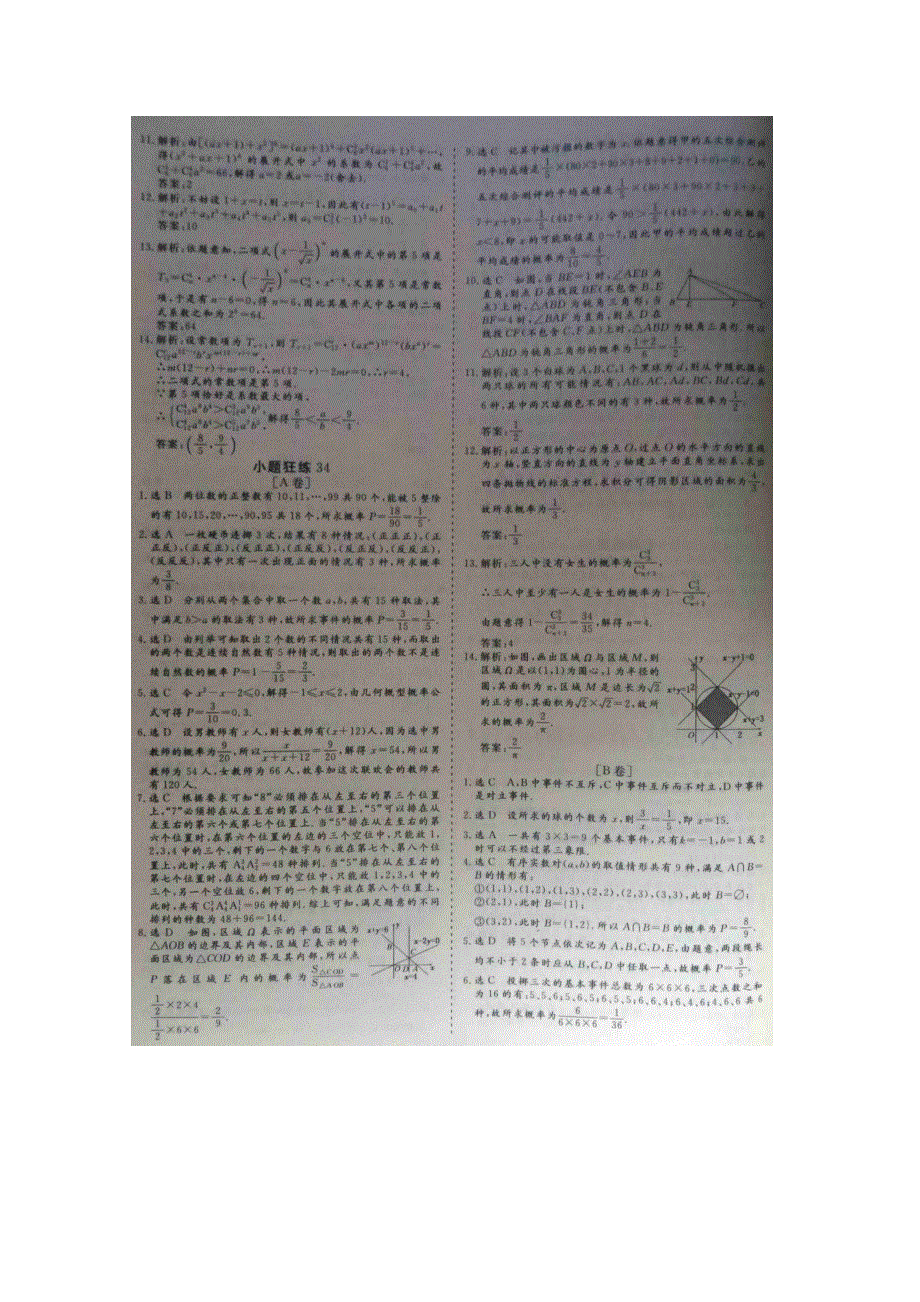 11.解析:由[(ax+1)+x²]⁶=(ax+1)⁶+C₆¹x²(ax+1)⁵+…,
得(x²+ax+1)⁶的展开式中x²的系数为
解得a=2或a=-2(舍去).
答案:2
12.解析:不妨设1+x=t,则x=t-1,因此有(t-1)⁵=a₀+a₁t
+a₂t²+a₃t³+a₄t⁴+a₅t⁵,则
=10.
答案:10
13.解析:依题意知,二项式(x-1/√x)ⁿ的展开式中的第5项是
又其第5项是常数
项,于是有n-6=0,得n=6,因此其展开式中各项的二项
式系数之和为2⁶=64.
答案:64
14.解析:设常数项为Tᵣ₊₁,则
∴m(12-r)+nr=0,∴m(12-r)-2mr=0,∴r=4,
∴二项式的常数项是第5项.
∵第5项恰好是系数最大的项,
解得8/5<a/b<9/4.
答案:(8/5,9/4)
小题狂练34
[A卷]
1.选B 两位数的正整数有10,11,…,99共90个,能被5整除
的有10,15,20,…,90,95共18个,所求概率P=18/90=1/5.
2.选A 一枚硬币连掷3次,结果有8种情况,(正正正),(正
正反),(正反正),(反正正),(正反反),(反正反),(反反正),
(反反反),其中只有一次出现正面的情况有3种,所求概率
为3/8.
3.选D 分别从两个集合中取一个数a,b,共有15种取法,其
中满足b>a的取法有3种,故所求事件的概率P=3/15=1/5.
4.选D 由列举可知取出2个数的不同情况共有15种,而取出
的两个数是连续自然数有5种情况,则取出的两个数不是连
续自然数的概率P=1-5/15=2/3.
5.选C 令x²-x-2≤0,解得-1≤x≤2,由几何概型概率公
式可得P=3/10=0.3.
6.选D 设男教师有x人,则女教师有(x+12)人,因为选中男
教师的概率为9/20,所以x/(x+x+12)=9/20,解得x=54,所以男
教师为54人,女教师为66人,故参加这次联欢会的教师共
有120人.
7.选C 根据要求可知“8”必须排在从左至右的第三个位置
上,“7”必须排在从左至右的第五个位置上,“5”可以排在从
左至右的第六个或第七个位置上.当“5”排在从左至右的第
六个位置时,在第六个位置的左边的三个空位中,只能放1,
2,3,4中的三个,剩下的一个数字与6放在第七个、第八个位
置上,此时,共有A₄³A₂²=48种排列.当“5”排在从左至右的
第七个位置时,在左边的四个空位中,只能放1,2,3,4中的
三个,另一个空位放6,剩下的一个数字放在第八个位置上,
此时,共有C₄¹A₄³A₁¹=96种排列.综上可知,满足题意的不同
排列的种数为48+96=144.
8.选D 如图,区域Ω表示的平面区域为
△AOB的边界及其内部,区域E表示的平
面区域为△COD的边界及其内部,所以点
P落在区域E内的概率为S△COD/S△AOB=
(1/2×2×4)/(1/2×6×6)=2/9.
x+y=6
y
x-2y=0
C
O
D
A
x
x=4
9.选C 记其中被污损的数字为x.依题意得甲的五次综合测评
的平均成绩是1/5×(80×2+90×3+8+9+2+1+0)=90,乙的
五次综合测评的平均成绩是1/5×(80×3+90×2+3+3+
7+x+9)=1/5(442+x).令90>1/5(442+x),由此解得
x<8,即x的可能取值是0~7,因此甲的平均成绩超过乙的
平均成绩的概率为8/10=4/5.
10.选C 如图,当BE=1时,∠AEB为
直角,则点D在线段BE(不包含B、E
点)上时,△ABD为钝角三角形;当
BF=4时,∠BAF为直角,则点D在
线段CF(不包含C、F点)上时,△ABD为钝角三角形.所以
△ABD为钝角三角形的概率为(1+2)/6=1/2.
11.解析:设3个白球为A,B,C,1个黑球为d,则从中随机摸出
两只球的所有可能情况有:AB,AC,Ad,BC,Bd,Cd,共
6种,其中两只球颜色不同的有3种,故所求概率为1/2.
答案:1/2
12.解析:以正方形的中心为原点O,过点O的水平方向的直线
为x轴,竖直方向的直线为y轴建立平面直角坐标系,求出
四条抛物线的标准方程,求积分可得阴影区域的面积为4/3,
故所求概率为1/3.
答案:1/3
13.解析:三人中没有女生的概率为
∴三人中至少有一人是女生的概率为
由题意得
=34/35,解得n=4.
答案:4
14.解析:如图,画出区域Ω与区域M,则
区域Ω是以(1,1)为圆心,1为半径的
圆,其面积为π,区域M是边长为√2
的正方形,其面积为√2×√2=2,故所
求的概率为2/π.
答案:2/π
y
x-y+1=0
x+y=1
x-y-1=0
x+y=3
2
1
O
1
2
x
[B卷]
1.选C A,B中事件不互斥,C中事件互斥而不对立,D中事件
是对立事件.
2.选D 设所求的球的个数为x,则3/x=1/5,即x=15.
3.选A 一共有3×3=9个基本事件,只有k=-1,b=1或2
时可以不经过第三象限.
4.选C 有序实数对(a,b)的取值情形共有9种,满足A∩B=
B的情形有:
①(1,1),(1,2),(1,3),(2,2),(2,3),(3,3),此时B=∅;
②(2,1),此时B={1};
③(3,2),此时B={1,2}.所以A∩B=B的概率为P=8/9.
5.选D 将5个节点依次记为A,B,C,D,E,由题意,两段绳长
均不小于2条时应从B,C,D中任取一点,故概率P=3/5.
6.选C 投掷三次的基本事件总数为6×6×6,三次点数之和
为16的有:5,5,6;5,6,5;6,5,5;6,6,4;6,4,6;4,6,6共6
种,故所求概率为6/(6×6×6)=1/36.